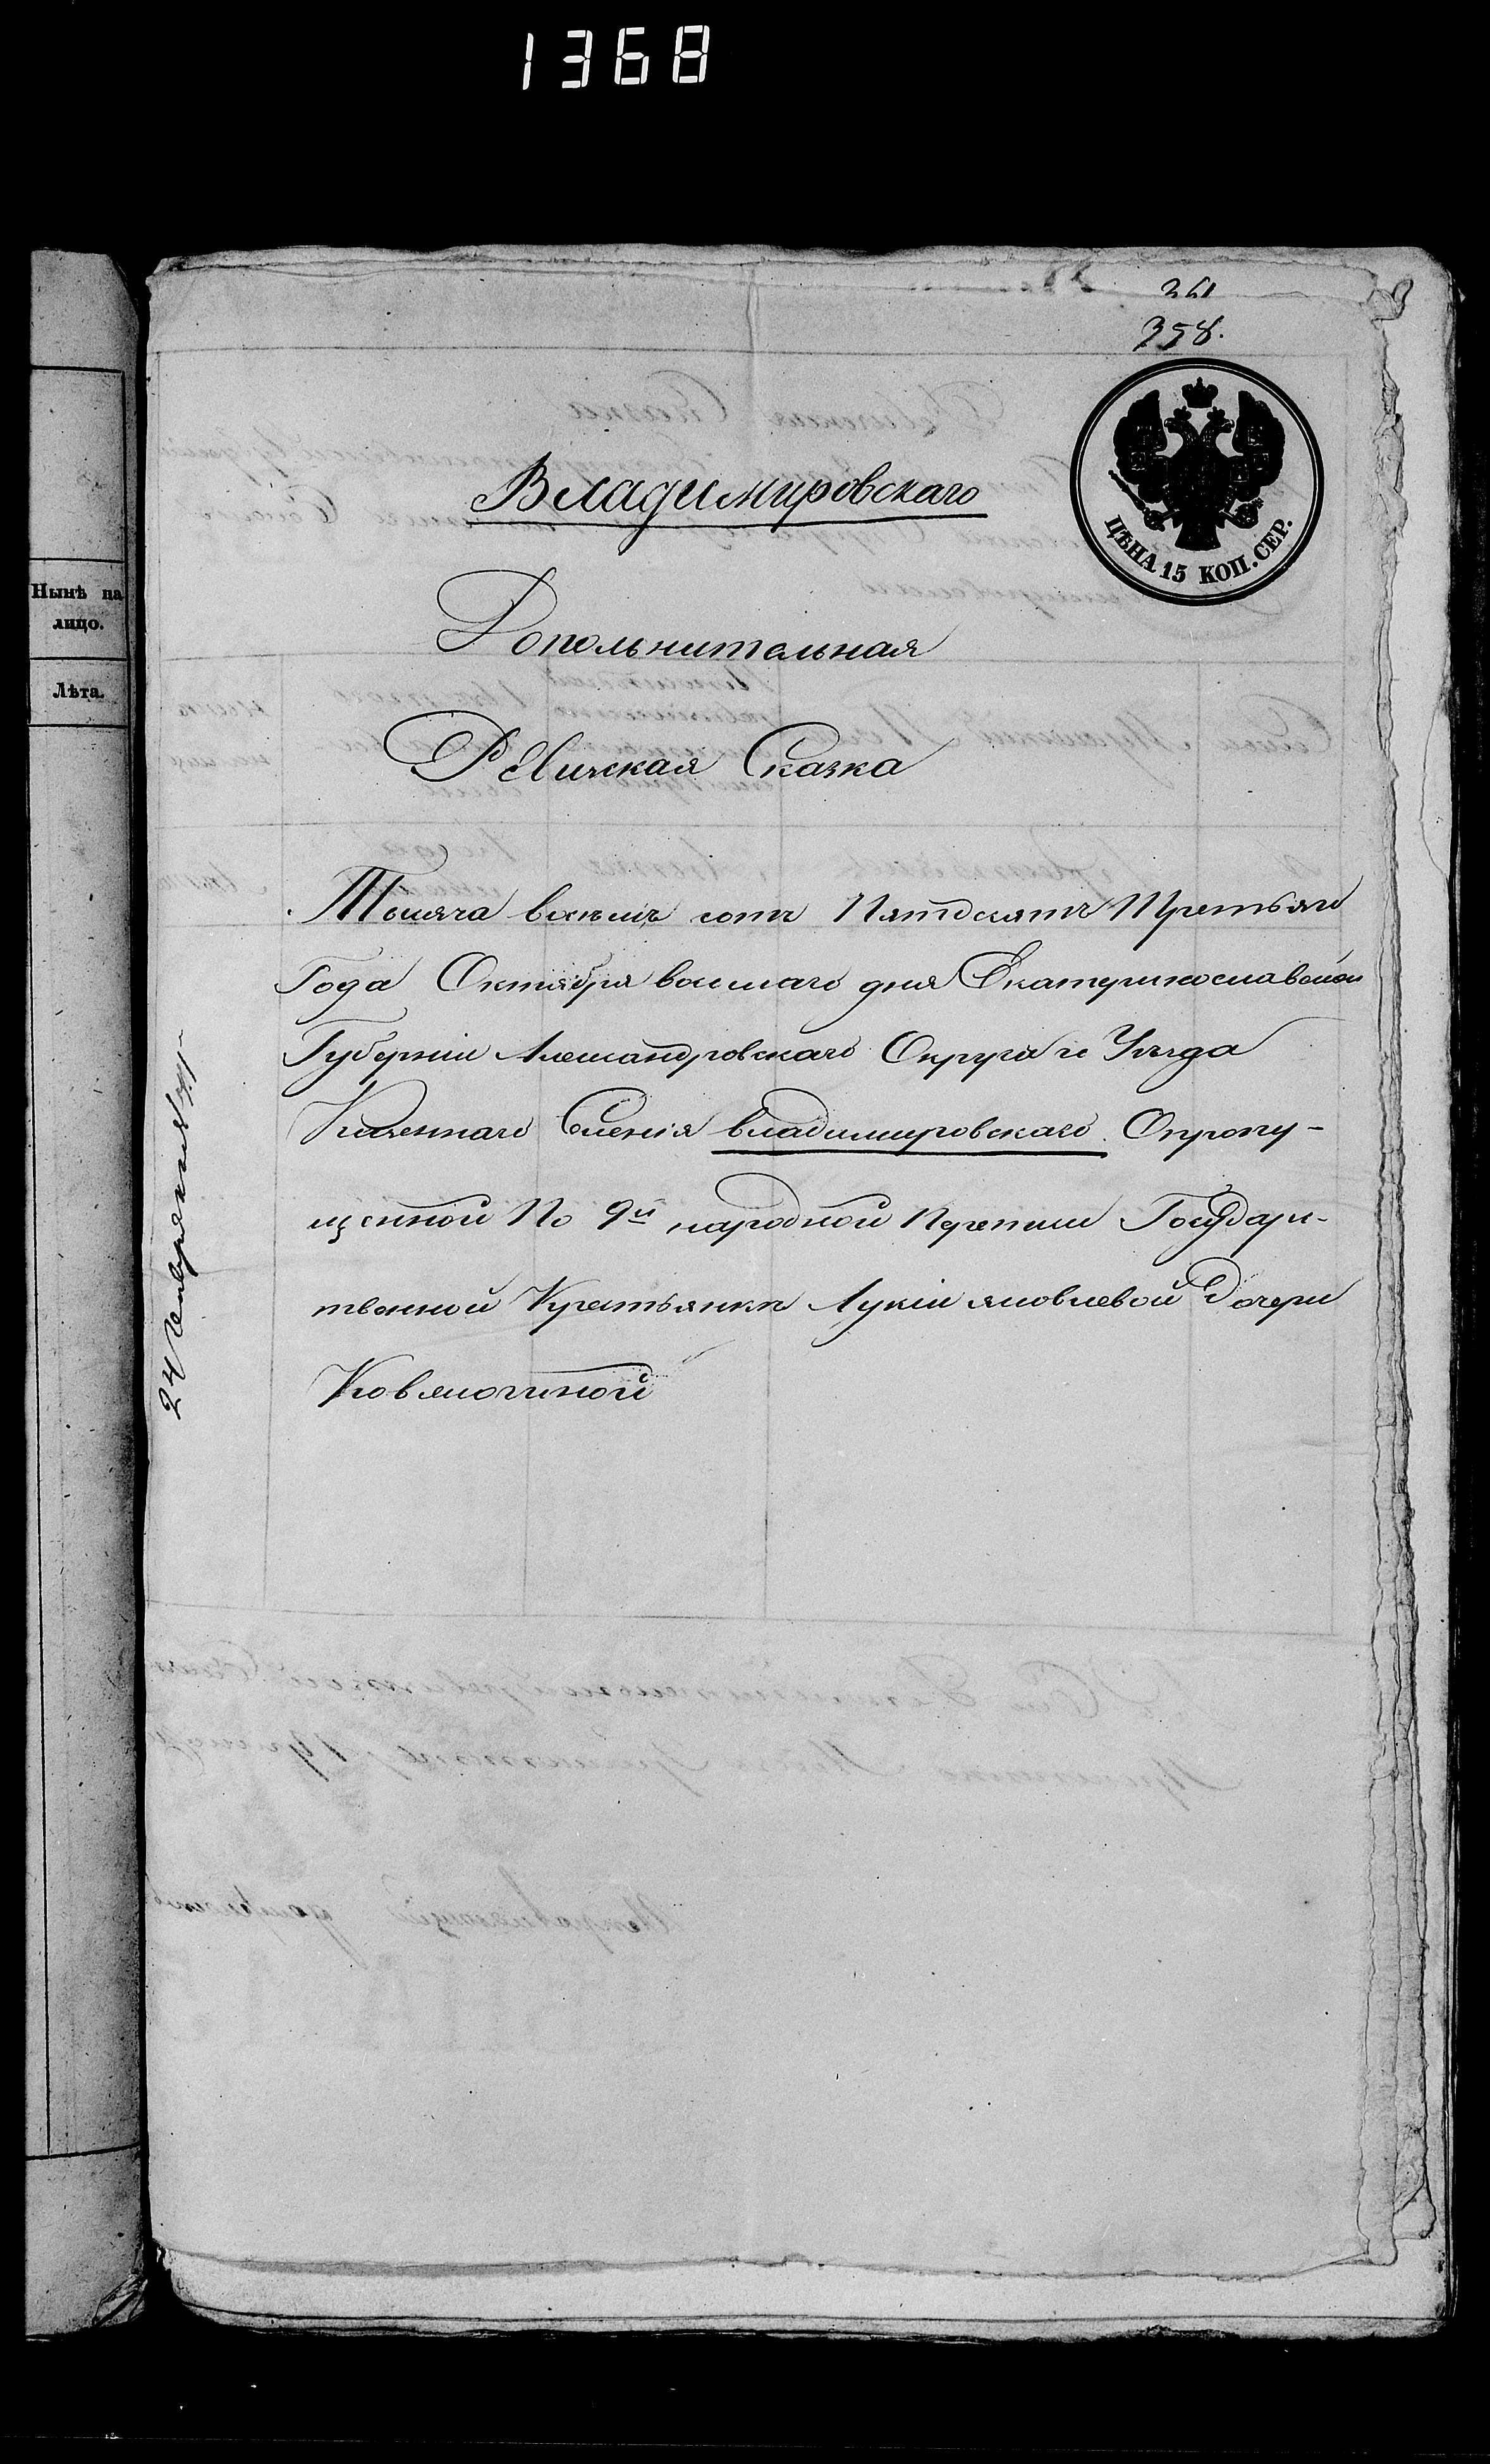 1368
361
358.
ЦѢНА 15 КОП. СЕР.
Нынѣ на
лицо.
Лѣта.
Владимировскаго
Дополнительная
Ревизская Сказка
Тысяча восемь сотъ Пятдесятъ Третьяго
Года Октября восмаго дня Екатеринославской
Губерніи Александровскаго Округа и Уѣзда
Казеннаго Селенія владимировскаго О пропу-
щенной По 9й народной Переписи Государс-
твенной Крестьянкѣ Лукіи яковлевой Дочери
24